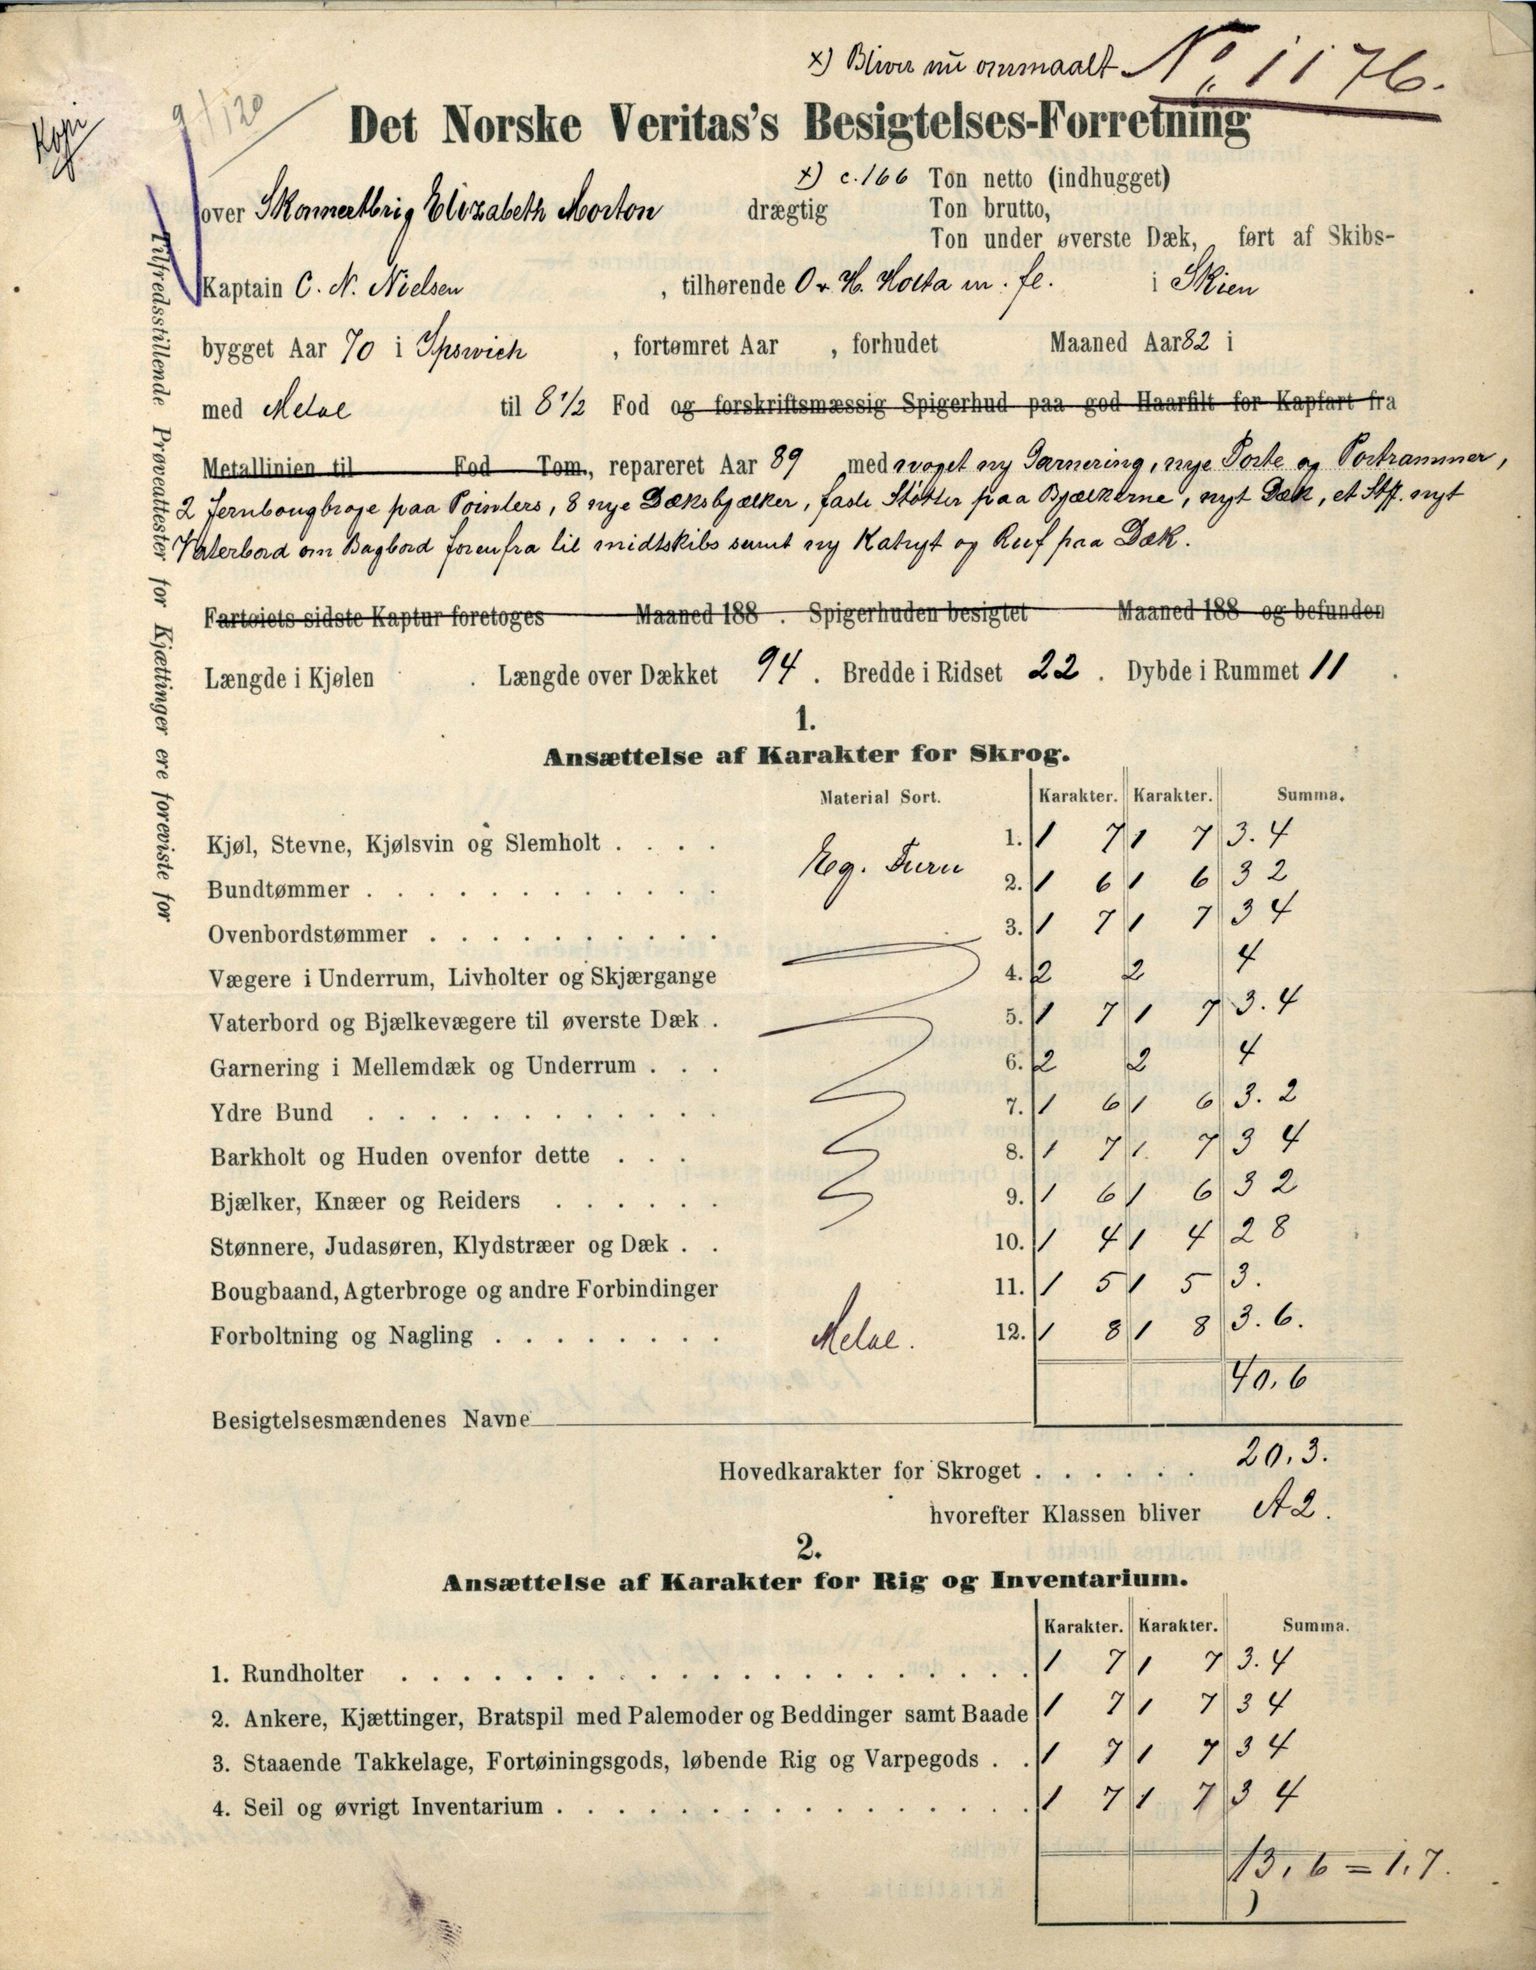 x) Bliver nu ommaalt No 1176.
Kopi
9/120
Det Norske Veritas's Besigtelses-Forretning
x) c. 166 Ton netto (indhugget)
over Skonnertbrig Elizabeth Morton drægtig Ton brutto,
Ton under øverste Dæk, ført af Skibs-
Kaptain C. N. Nielsen, tilhørende O. H. Holta m. fl. i Skien
bygget Aar 70 i Ipswich, fortømret Aar , forhudet Maaned Aar 82 i
med Metal til 8 1/2 Fod og forskriftsmæssig Spigerhud paa god Haarfilt for Kapfart fra
Metallinien til Fod Tom., repareret Aar 89 med noget ny Garnering, nye Porte og Portrammer,
2 Jernbougbroge paa Pointers, 8 nye Dæksbjælker, faste Støtter paa Bjælkerne, nyt Dæk, et Stk. nyt
Vaterbord om Bagbord forenfra til midtskibs samt ny Kahyt og Ruf paa Dæk.
Fartøiets sidste Kaptur foretoges Maaned 188 . Spigerhuden besigtet Maaned 188 og befunden
Længde i Kjølen . Længde over Dækket 94 . Bredde i Ridset 22 . Dybde i Rummet 11 .
Tilfredsstillende Prøveattester for Kjættinger ere foreviste for
1.
Ansættelse af Karakter for Skrog.
Material Sort. Karakter. Karakter. Summa.
Kjøl, Stevne, Kjølsvin og Slemholt . . . . 1. 1 7 1 7 3.4
Eg. Furu
Bundtømmer . . . . . . . . . . . . . 2. 1 6 1 6 3 2
Ovenbordstømmer . . . . . . . . . . . 3. 1 7 1 7 3 4
Vægere i Underrum, Livholter og Skjærgange 4. 2 2 4
Vaterbord og Bjælkevægere til øverste Dæk . 5. 1 7 1 7 3.4
Garnering i Mellemdæk og Underrum . . . 6. 2 2 4
Ydre Bund . . . . . . . . . . . . . 7. 1 6 1 6 3.2
Barkholt og Huden ovenfor dette . . . 8. 1 7 1. 7 3 4
Bjælker, Knæer og Reiders . . . . . . 9. 1 6 1 6 3 2
Stønnere, Judasøren, Klydstræer og Dæk . . 10. 1 4 1 4 2 8
Bougbaand, Agterbroge og andre Forbindinger 11. 1 5 1 5 3.
Forboltning og Nagling . . . . . . . . Metal. 12. 1 8 1 8 3.6.
40,6
Besigtelsesmændenes Navne
Hovedkarakter for Skroget . . . . . . 20,3.
hvorefter Klassen bliver A2.
2.
Ansættelse af Karakter for Rig og Inventarium.
Karakter. Karakter. Summa.
1. Rundholter . . . . . . . . . . . . . . . . . . . . 1 7 1 7 3.4
2. Ankere, Kjættinger, Bratspil med Palemoder og Beddinger samt Baade 1 7 1 7 3 4
3. Staaende Takkelage, Fortøiningsgods, løbende Rig og Varpegods . . 1 7 1 7 3 4
4. Seil og øvrigt Inventarium . . . . . . . . . . . . . . 1 7 1 7 3 4
13,6 = 1,7.